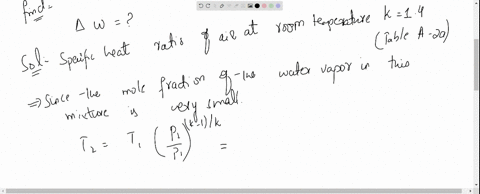 find:-
Δ W = ?
Sol:- Specific heat ratio of air at room temperature K = 1.4
(Table A-2a)
⇒ Since the mole fraction of the water vapor in this
mixture is very small.
T₂ = T₁ (P₂/P₁)^(k-1)/k =